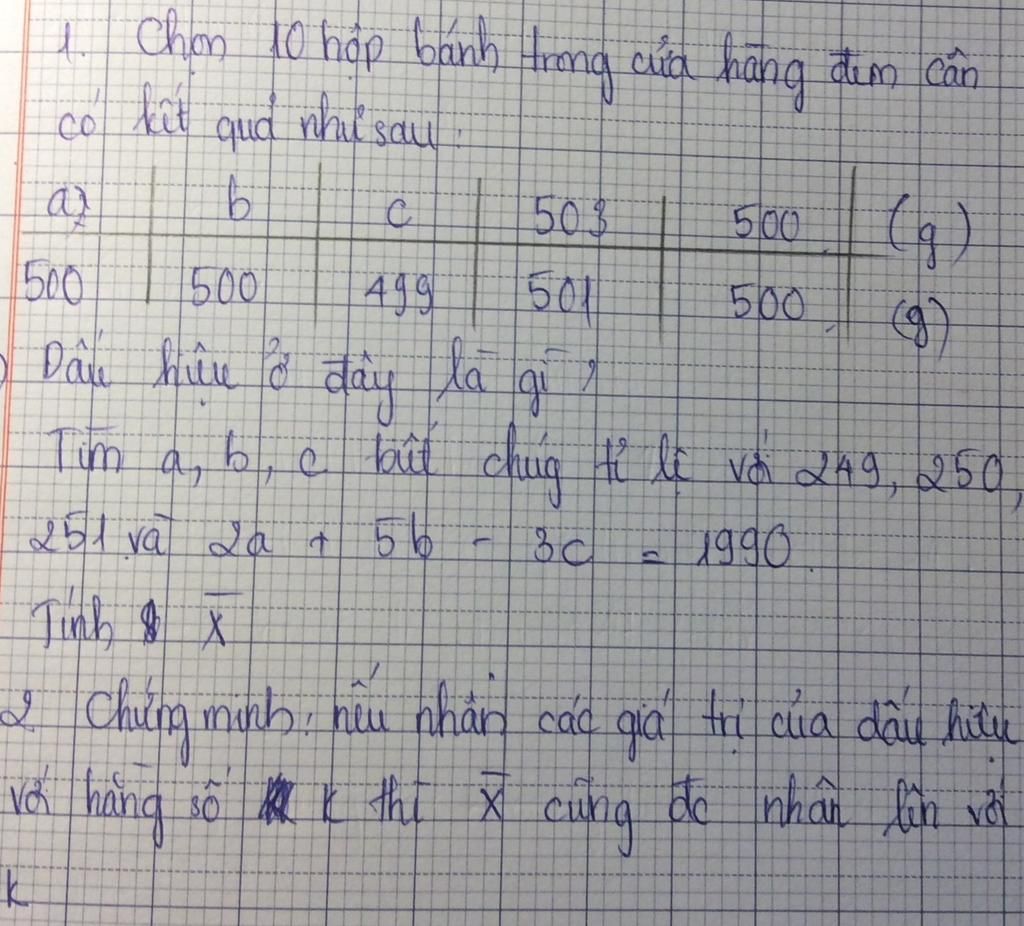 1. Chọn 10 hộp bánh trong cửa hàng đem cân
có kết quả như sau:
a b c 503 500 (g)
500 500 499 501 500 (g)
Dấu hiệu ở đây là gì?
Tìm a, b, c biết chúg tỉ lệ với 249, 250,
251 và 2a + 5b - 3c = 1990.
Tính X̄
2 Chứng minh: nếu nhân các giá trị của dấu hiệu
với hằng số k thì X̄ cũng đc nhân lên với
k